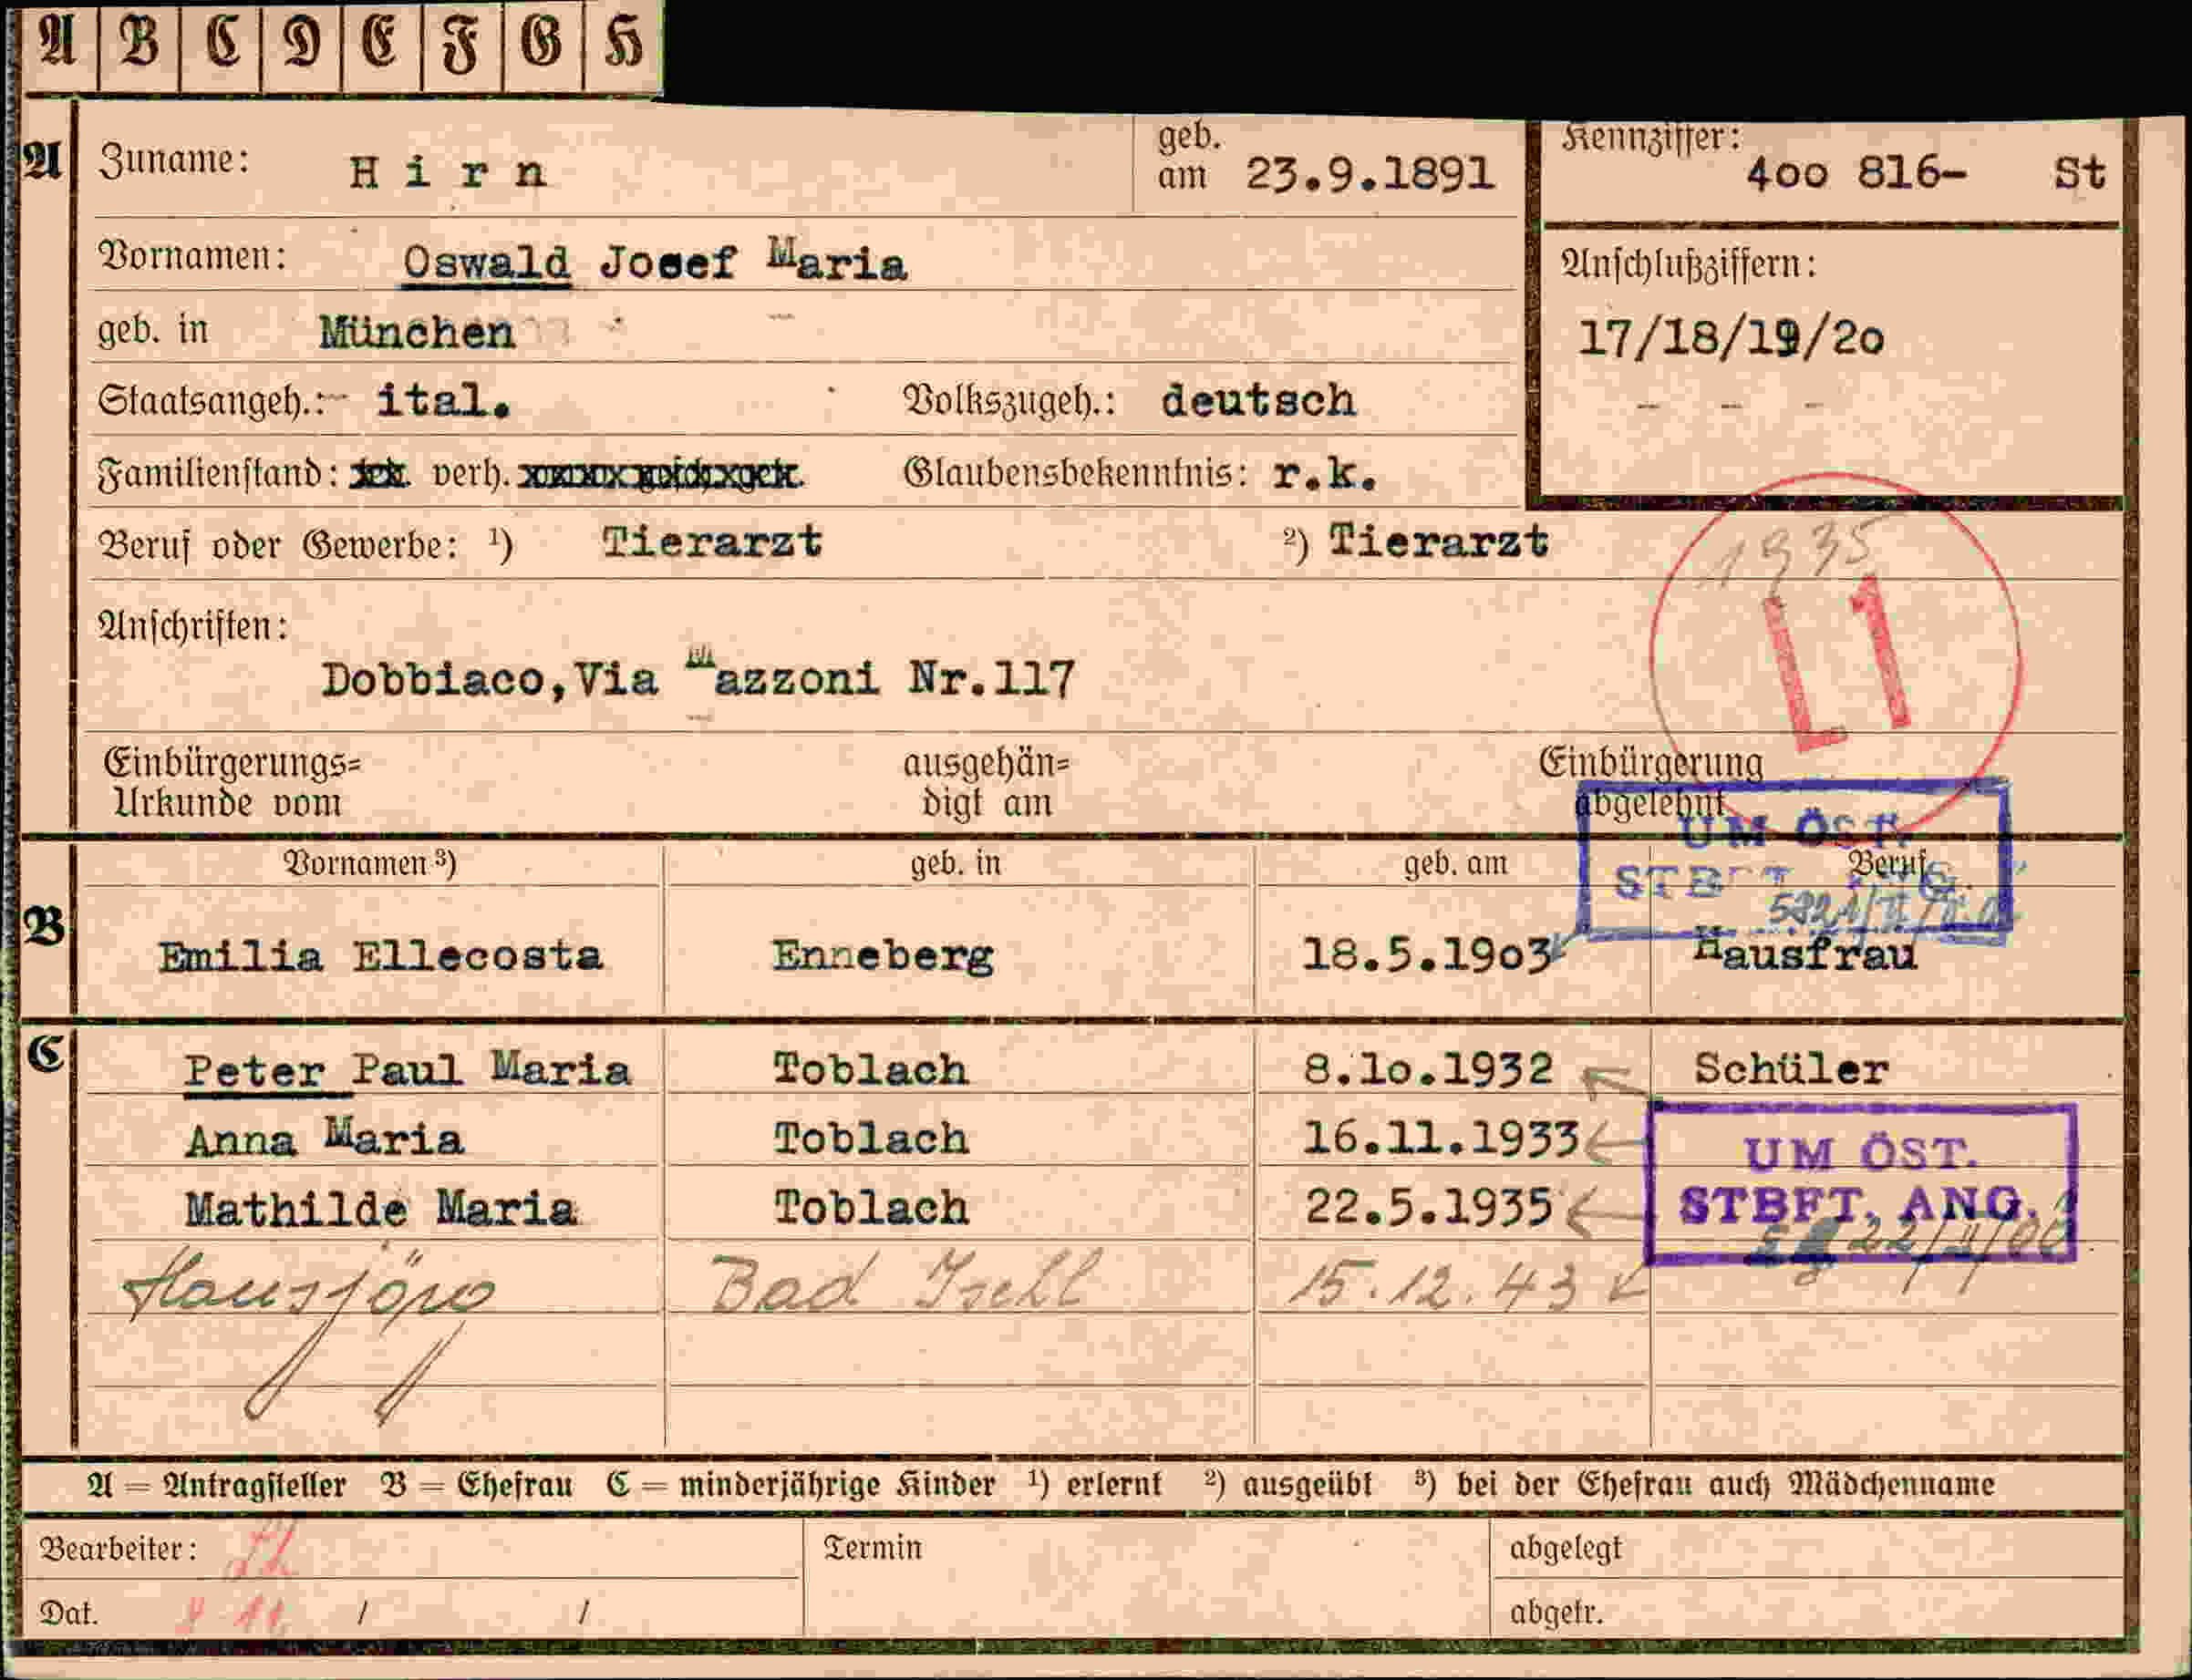 A B C D E F G H
A Zuname: Hirn geb. am 23.9.1891 Kennziffer: 4oo 816- St
Vornamen: Oswald Josef Maria Anschlußziffern:
geb. in München 17/18/19/2o
Staatsangeh.: ital. Volkszugeh.: deutsch - - -
Familienstand: verh. Glaubensbekenntnis: r.k.
Beruf oder Gewerbe: ¹) Tierarzt ²) Tierarzt 1935
L1
Anschriften:
Dobbiaco,Via Mazzoni Nr.117
Einbürgerungs= ausgehän= Einbürgerung
Urkunde vom digt am abgelehnt
UM ÖST.
Vornamen ³) geb. in geb. am Beruf
B Emilia Ellecosta Enneberg 18.5.19o3 Hausfrau
C Peter Paul Maria Toblach 8.1o.1932 Schüler
Anna Maria Toblach 16.11.1933 UM ÖST.
Mathilde Maria Toblach 22.5.1935 STBFT. ANG.
Hansjörg Bad Ischl 15.12.43
A = Antragsteller B = Ehefrau C = minderjährige Kinder ¹) erlernt ²) ausgeübt ³) bei der Ehefrau auch Mädchenname
Bearbeiter: Termin abgelegt
Dat. / / abgetr.